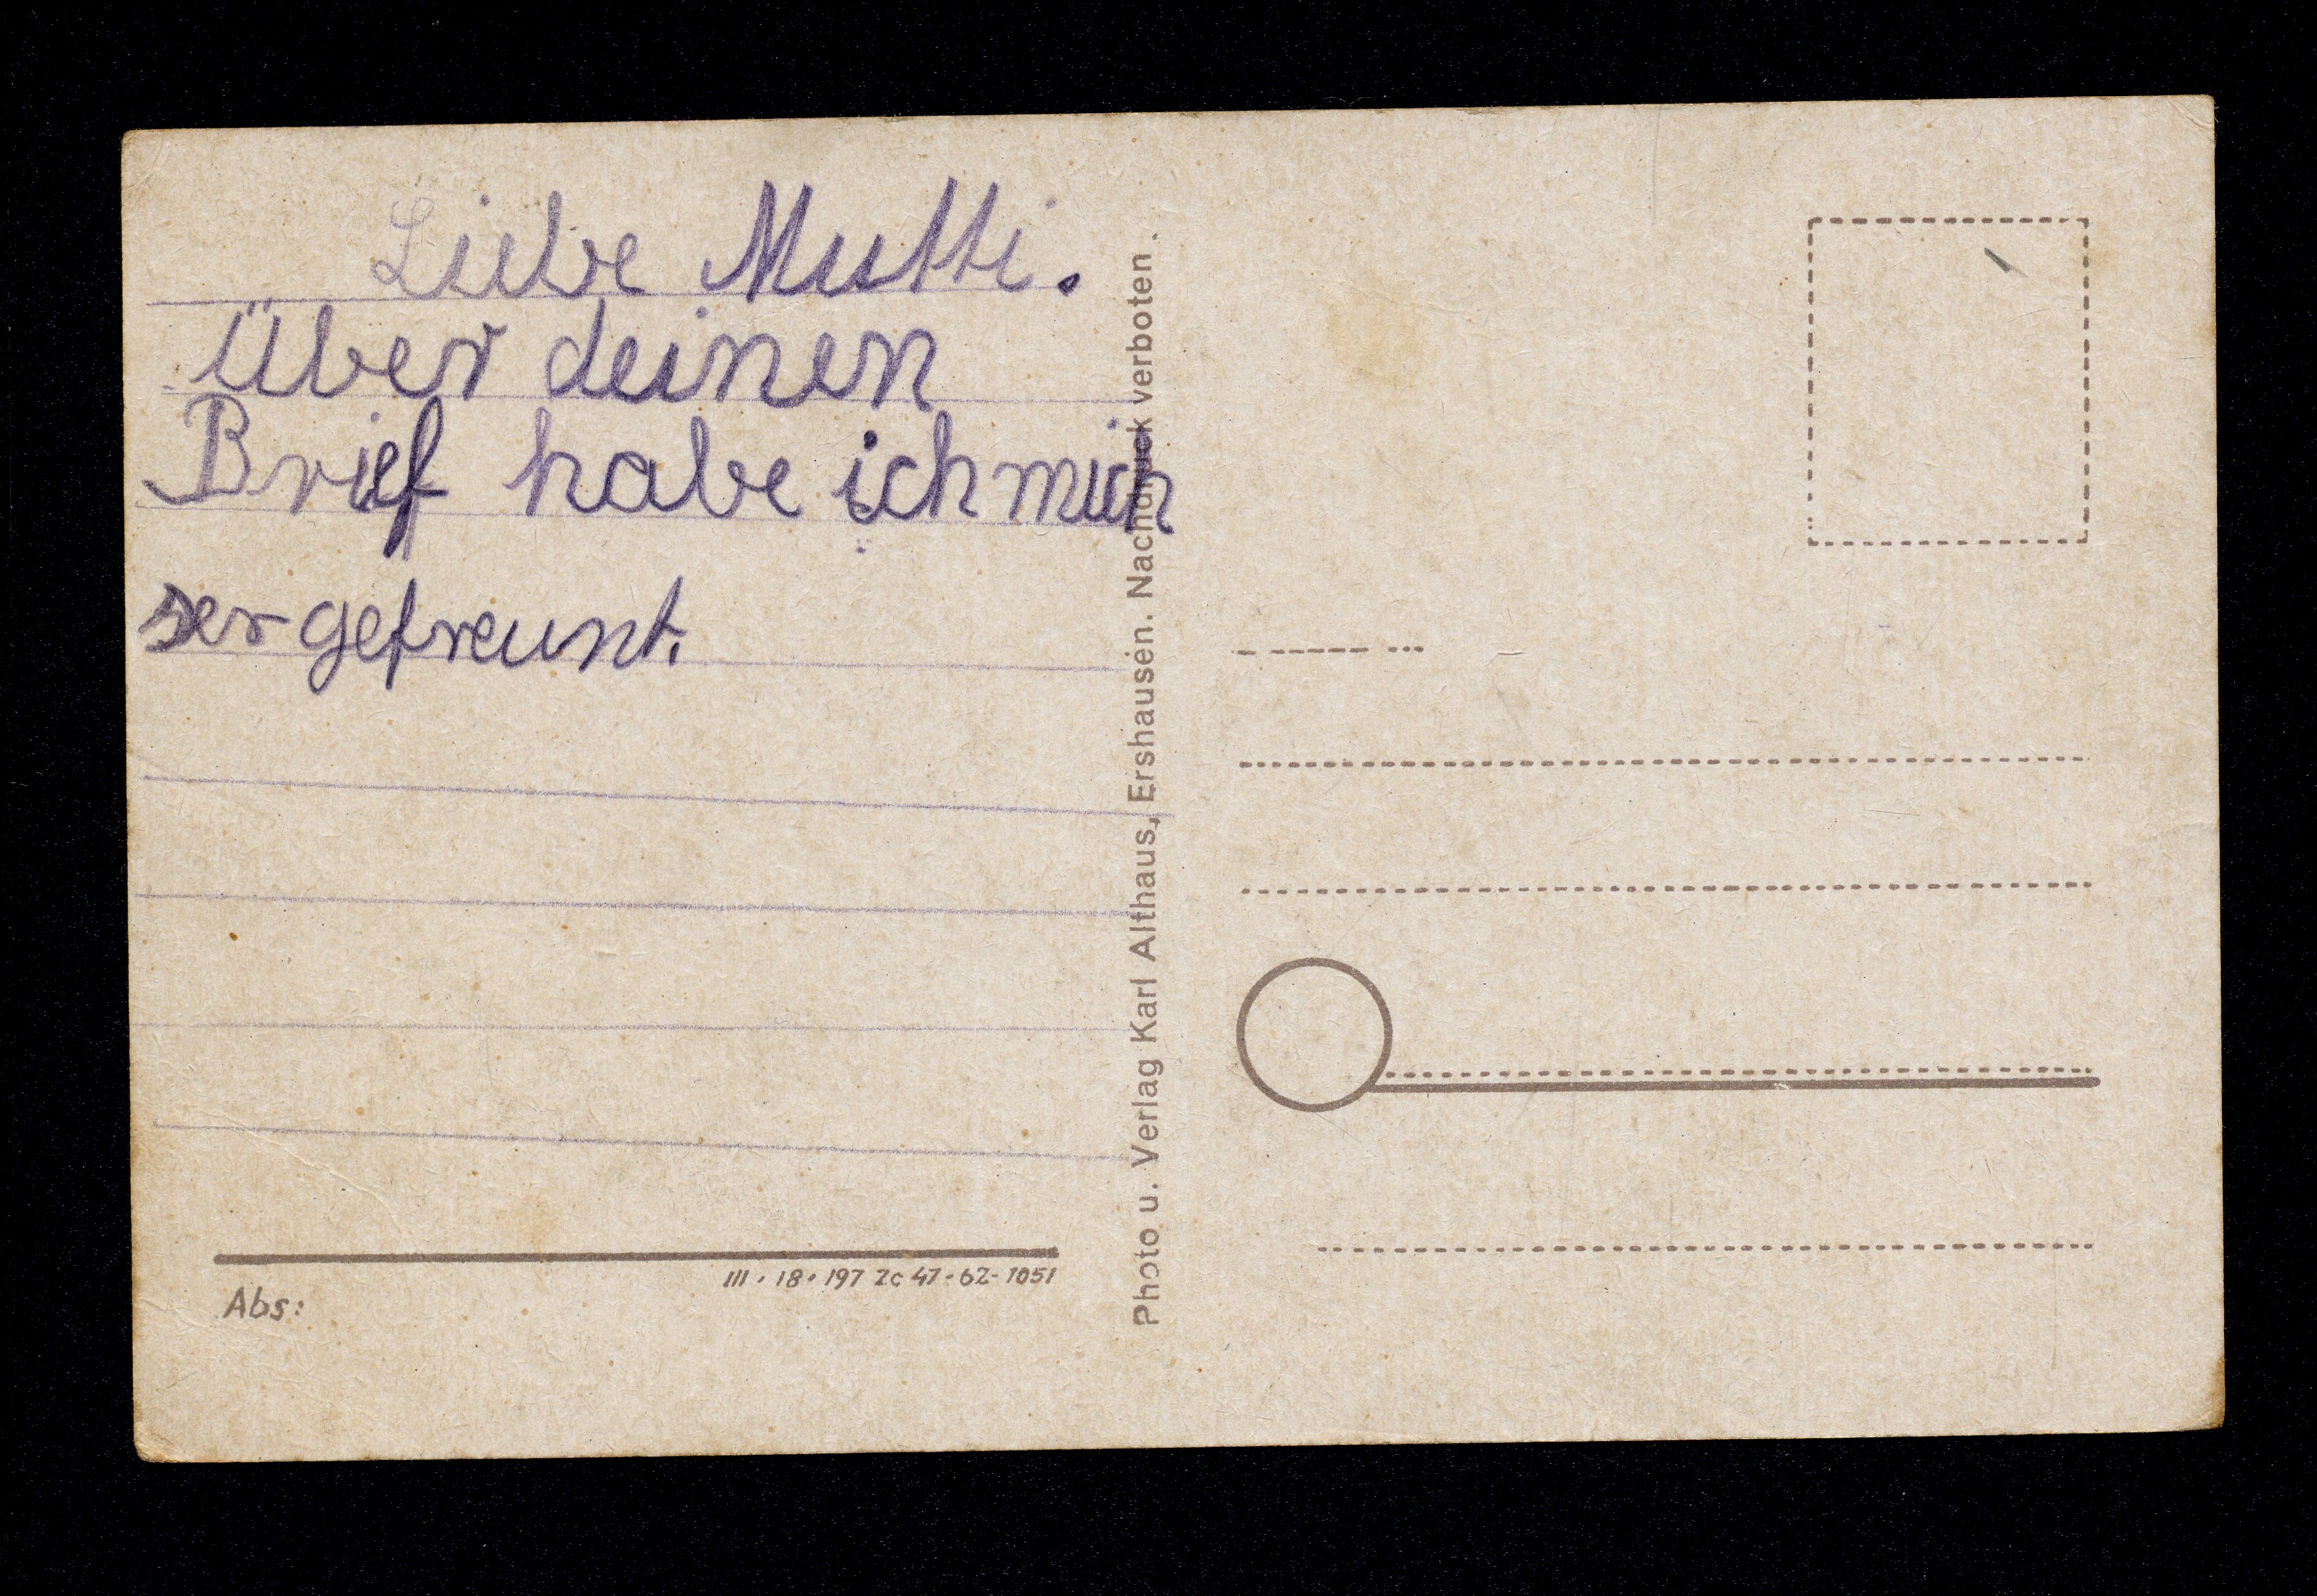 Liebe Mutti.
Über deinen
Brief habe ich mich
ser gefreunt.
III · 18 · 197 Zc 47 - 62 - 1051
Abs:
Photo u. Verlag Karl Althaus, Ershausen. Nachdruck verboten.